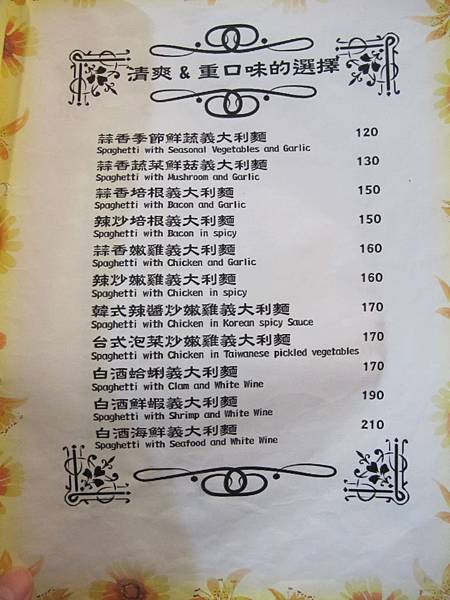 清爽 & 重口味的選擇
蒜香季節鮮蔬義大利麵 120
Spaghetti with Seasonal Vegetables and Garlic
蒜香蔬菜鮮菇義大利麵 130
Spaghetti with Mushroom and Garlic
蒜香培根義大利麵 150
Spaghetti with Bacon and Garlic
辣炒培根義大利麵 150
Spaghetti with Bacon in spicy
蒜香嫩雞義大利麵 160
Spaghetti with Chicken and Garlic
辣炒嫩雞義大利麵 160
Spaghetti with Chicken in spicy
韓式辣醬炒嫩雞義大利麵 170
Spaghetti with Chicken in Korean spicy Sauce
台式泡菜炒嫩雞義大利麵 170
Spaghetti with Chicken in Taiwanese pickled vegetables
白酒蛤蜊義大利麵 170
Spaghetti with Clam and White Wine
白酒鮮蝦義大利麵 190
Spaghetti with Shrimp and White Wine
白酒海鮮義大利麵 210
Spaghetti with Seafood and White Wine